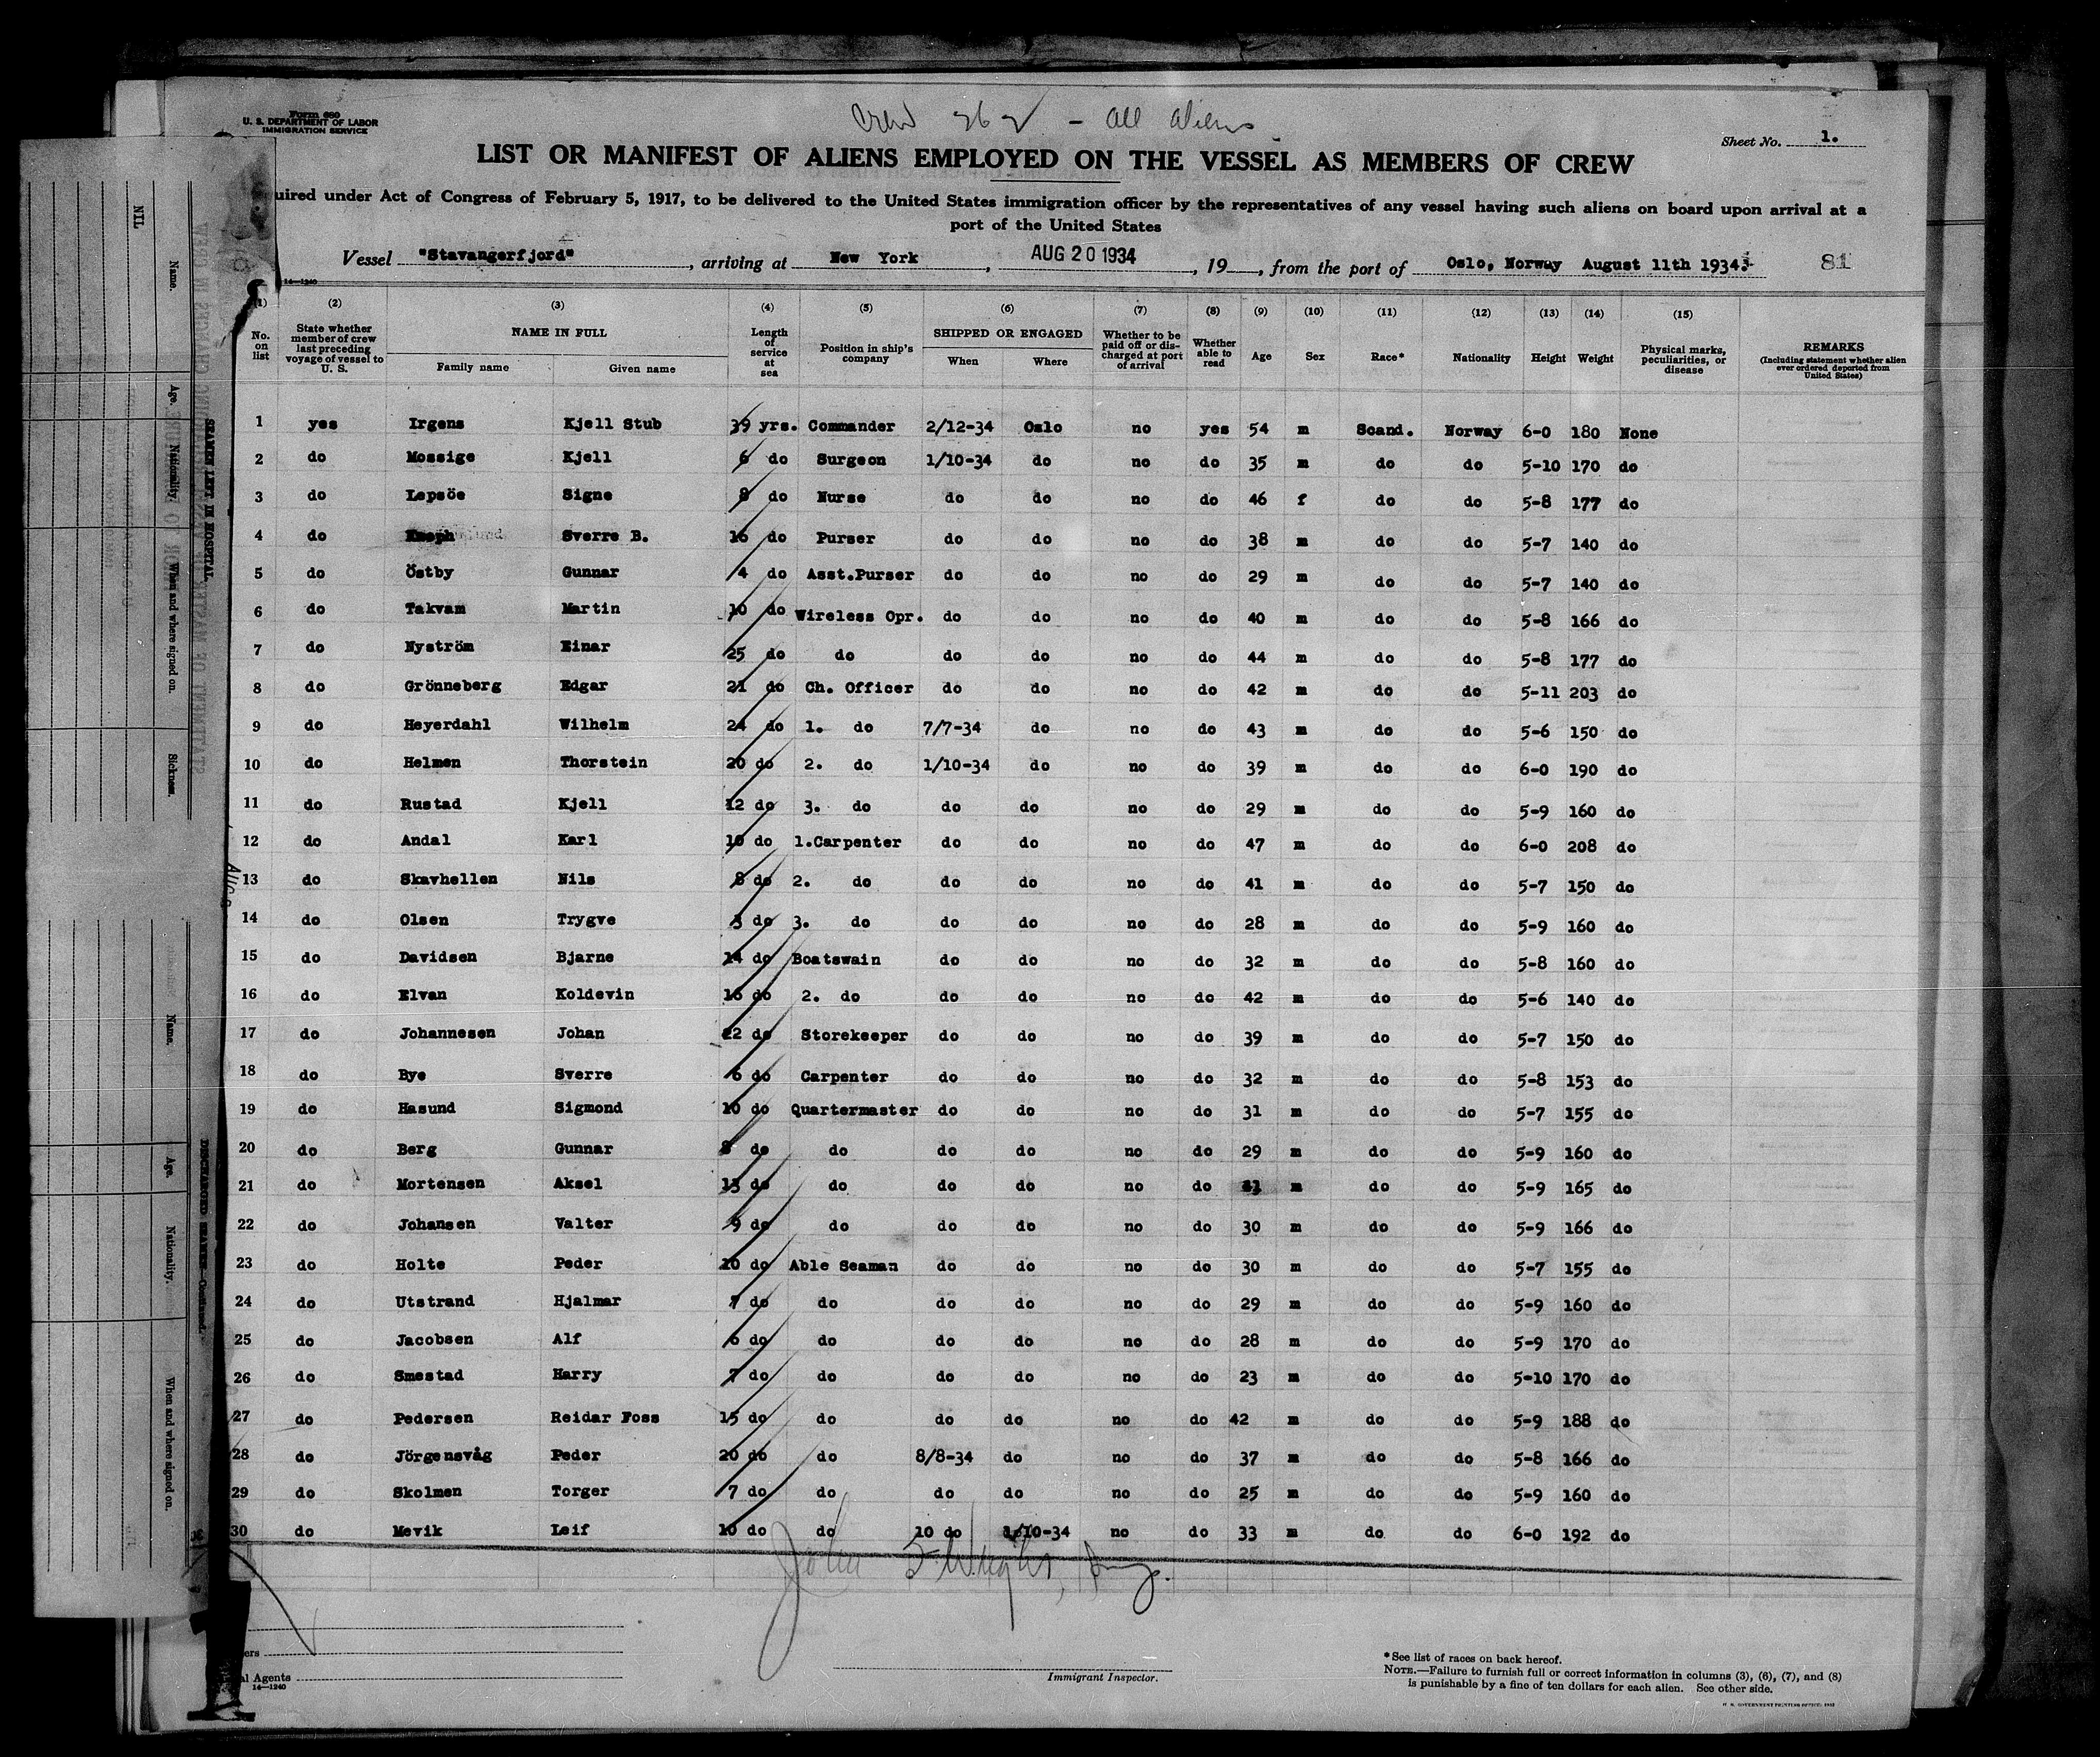 Form 680
U. S. DEPARTMENT OF LABOR
IMMIGRATION SERVICE
Crew 262 - all aliens
Sheet No. 1.
LIST OR MANIFEST OF ALIENS EMPLOYED ON THE VESSEL AS MEMBERS OF CREW
uired under Act of Congress of February 5, 1917, to be delivered to the United States immigration officer by the representatives of any vessel having such aliens on board upon arrival at a
port of the United States
Vessel "Stavangerfjord", arriving at New York, AUG 20 1934, 19 , from the port of Oslo, Norway August 11th 1934. 81
14—1240
(1) (2) (3) (4) (5) (6) (7) (8) (9) (10) (11) (12) (13) (14) (15)
No. on list State whether member of crew last preceding voyage of vessel to U. S. NAME IN FULL Family name Given name Length of service at sea Position in ship's company SHIPPED OR ENGAGED When Where Whether to be paid off or discharged at port of arrival Whether able to read Age Sex Race* Nationality Height Weight Physical marks, peculiarities, or disease REMARKS (Including statement whether alien ever ordered deported from United States)
1 yes Irgens Kjell Stub 39 yrs. Commander 2/12-34 Oslo no yes 54 m Scand. Norway 6-0 180 None
2 do Mossige Kjell 6 do Surgeon 1/10-34 do no do 35 m do do 5-10 170 do
3 do Lepsöe Signe 8 do Nurse do do no do 46 f do do 5-8 177 do
4 do Sverre B. 16 do Purser do do no do 38 m do do 5-7 140 do
5 do Östby Gunnar 4 do Asst.Purser do do no do 29 m do do 5-7 140 do
6 do Takvam Martin 10 do Wireless Opr. do do no do 40 m do do 5-8 166 do
7 do Nyström Einar 25 do do do do no do 44 m do do 5-8 177 do
8 do Grönneberg Edgar 21 do Ch. Officer do do no do 42 m do do 5-11 203 do
9 do Heyerdahl Wilhelm 24 do 1. do 7/7-34 do no do 43 m do do 5-6 150 do
10 do Helmen Thorstein 20 do 2. do 1/10-34 do no do 39 m do do 6-0 190 do
11 do Rustad Kjell 12 do 3. do do do no do 29 m do do 5-9 160 do
12 do Andal Karl 10 do 1.Carpenter do do no do 47 m do do 6-0 208 do
13 do Skavhellen Nils 8 do 2. do do do no do 41 m do do 5-7 150 do
14 do Olsen Trygve 3 do 3. do do do no do 28 m do do 5-9 160 do
15 do Davidsen Bjarne 14 do Boatswain do do no do 32 m do do 5-8 160 do
16 do Elvan Koldevin 16 do 2. do do do no do 42 m do do 5-6 140 do
17 do Johannesen Johan 22 do Storekeeper do do no do 39 m do do 5-7 150 do
18 do Bye Sverre 6 do Carpenter do do no do 32 m do do 5-8 153 do
19 do Hasund Sigmond 10 do Quartermaster do do no do 31 m do do 5-7 155 do
20 do Berg Gunnar 8 do do do do no do 29 m do do 5-9 160 do
21 do Mortensen Aksel 13 do do do do no do m do do 5-9 165 do
22 do Johansen Valter 9 do do do do no do 30 m do do 5-9 166 do
23 do Holte Peder 10 do Able Seaman do do no do 30 m do do 5-7 155 do
24 do Utstrand Hjalmar 7 do do do do no do 29 m do do 5-9 160 do
25 do Jacobsen Alf 6 do do do do no do 28 m do do 5-9 170 do
26 do Smestad Harry 7 do do do do no do 23 m do do 5-10 170 do
27 do Pedersen Reidar Foss 15 do do do do no do 42 m do do 5-9 188 do
28 do Jörgensvåg Peder 20 do do 8/8-34 do no do 37 m do do 5-8 166 do
29 do Skolmen Torger 7 do do do do no do 25 m do do 5-9 160 do
30 do Mevik Leif 10 do do 10 do 1/10-34 no do 33 m do do 6-0 192 do
John S Wright,
ers
al Agents
14—1240
Immigrant Inspector.
*See list of races on back hereof.
NOTE.—Failure to furnish full or correct information in columns (3), (6), (7), and (8)
is punishable by a fine of ten dollars for each alien. See other side.
U. S. GOVERNMENT PRINTING OFFICE: 1932
NIL
Name.
Age.
Nationality.
When and where signed on.
Sickness.
SEAMEN LEFT IN HOSPITAL
Name.
Age.
Nationality.
When and where signed on.
DISCHARGED SEAMEN—Continued.